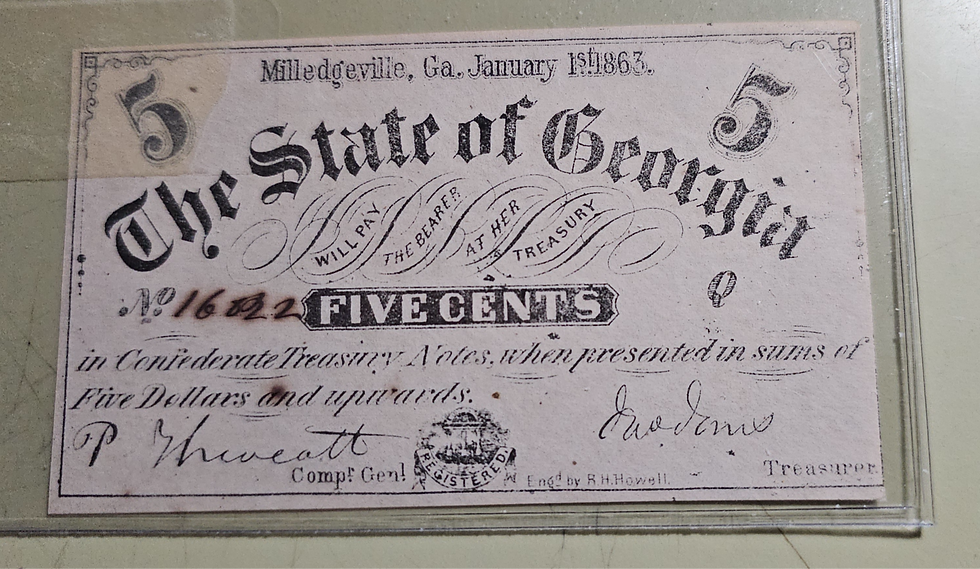 Milledgeville, Ga. January 1st 1863.
5 5
The State of Georgia
WILL PAY THE BEARER AT HER TREASURY
No. 16 FIVE CENTS
in Confederate Treasury Notes, when presented in sums of
Five Dollars and upwards.
P Thweatt Jno Jones
Compt Genl REGISTERED. Engd by R.H. Howell. Treasurer.